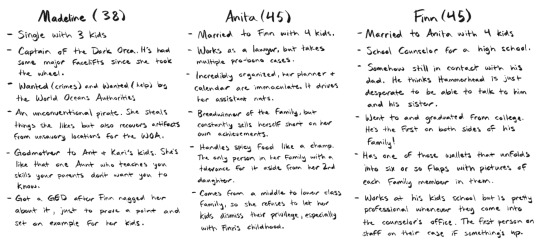 Madeline (38)
- Single with 3 kids
- Captain of the Dark Orca. He's had
some major facelifts since she took
the wheel.
- Wanted (crimes) and Wanted (help) by
the World Oceans Authorities
- An unconventional pirate. She steals
things she likes but also recovers artifacts
from unsavory locations for the WOA.
- Godmother to Ant + Kari's kids. She's
like that one Aunt who teaches you
skills your parents don't want you to
know.
- Got a GED after Finn nagged her
about it, just to prove a point and
set an example for her kids.
Anita (45)
- Married to Finn with 4 kids.
- Works as a lawyer, but takes
multiple pro-bono cases.
- Incredibly organized, her planner +
calendar are immaculate. It drives
her assistant nuts.
- Breadwinner of the family, but
constantly sells herself short on her
own achievements.
- Handles spicy food like a champ.
The only person in her family with a
tolerance for it aside from her 2nd
daughter.
- Comes from a middle to lower class
family, so she refuses to let her
kids dismiss their privilege, especially
with Finn's childhood.
Finn (45)
- Married to Anita with 4 kids
- School Counselor for a high school.
- Somehow still in contact with his
dad. He thinks Hammerhead is just
desperate to be able to talk to him
and his sister.
- Went to and graduated from college.
He's the first on both sides of his
family!
- Has one of those wallets that unfolds
into six or so flaps with pictures of
each family member in them.
- Works at his kids school but is pretty
professional whenever they come into
the counselor's office. The first person on
staff on their case if something's up.